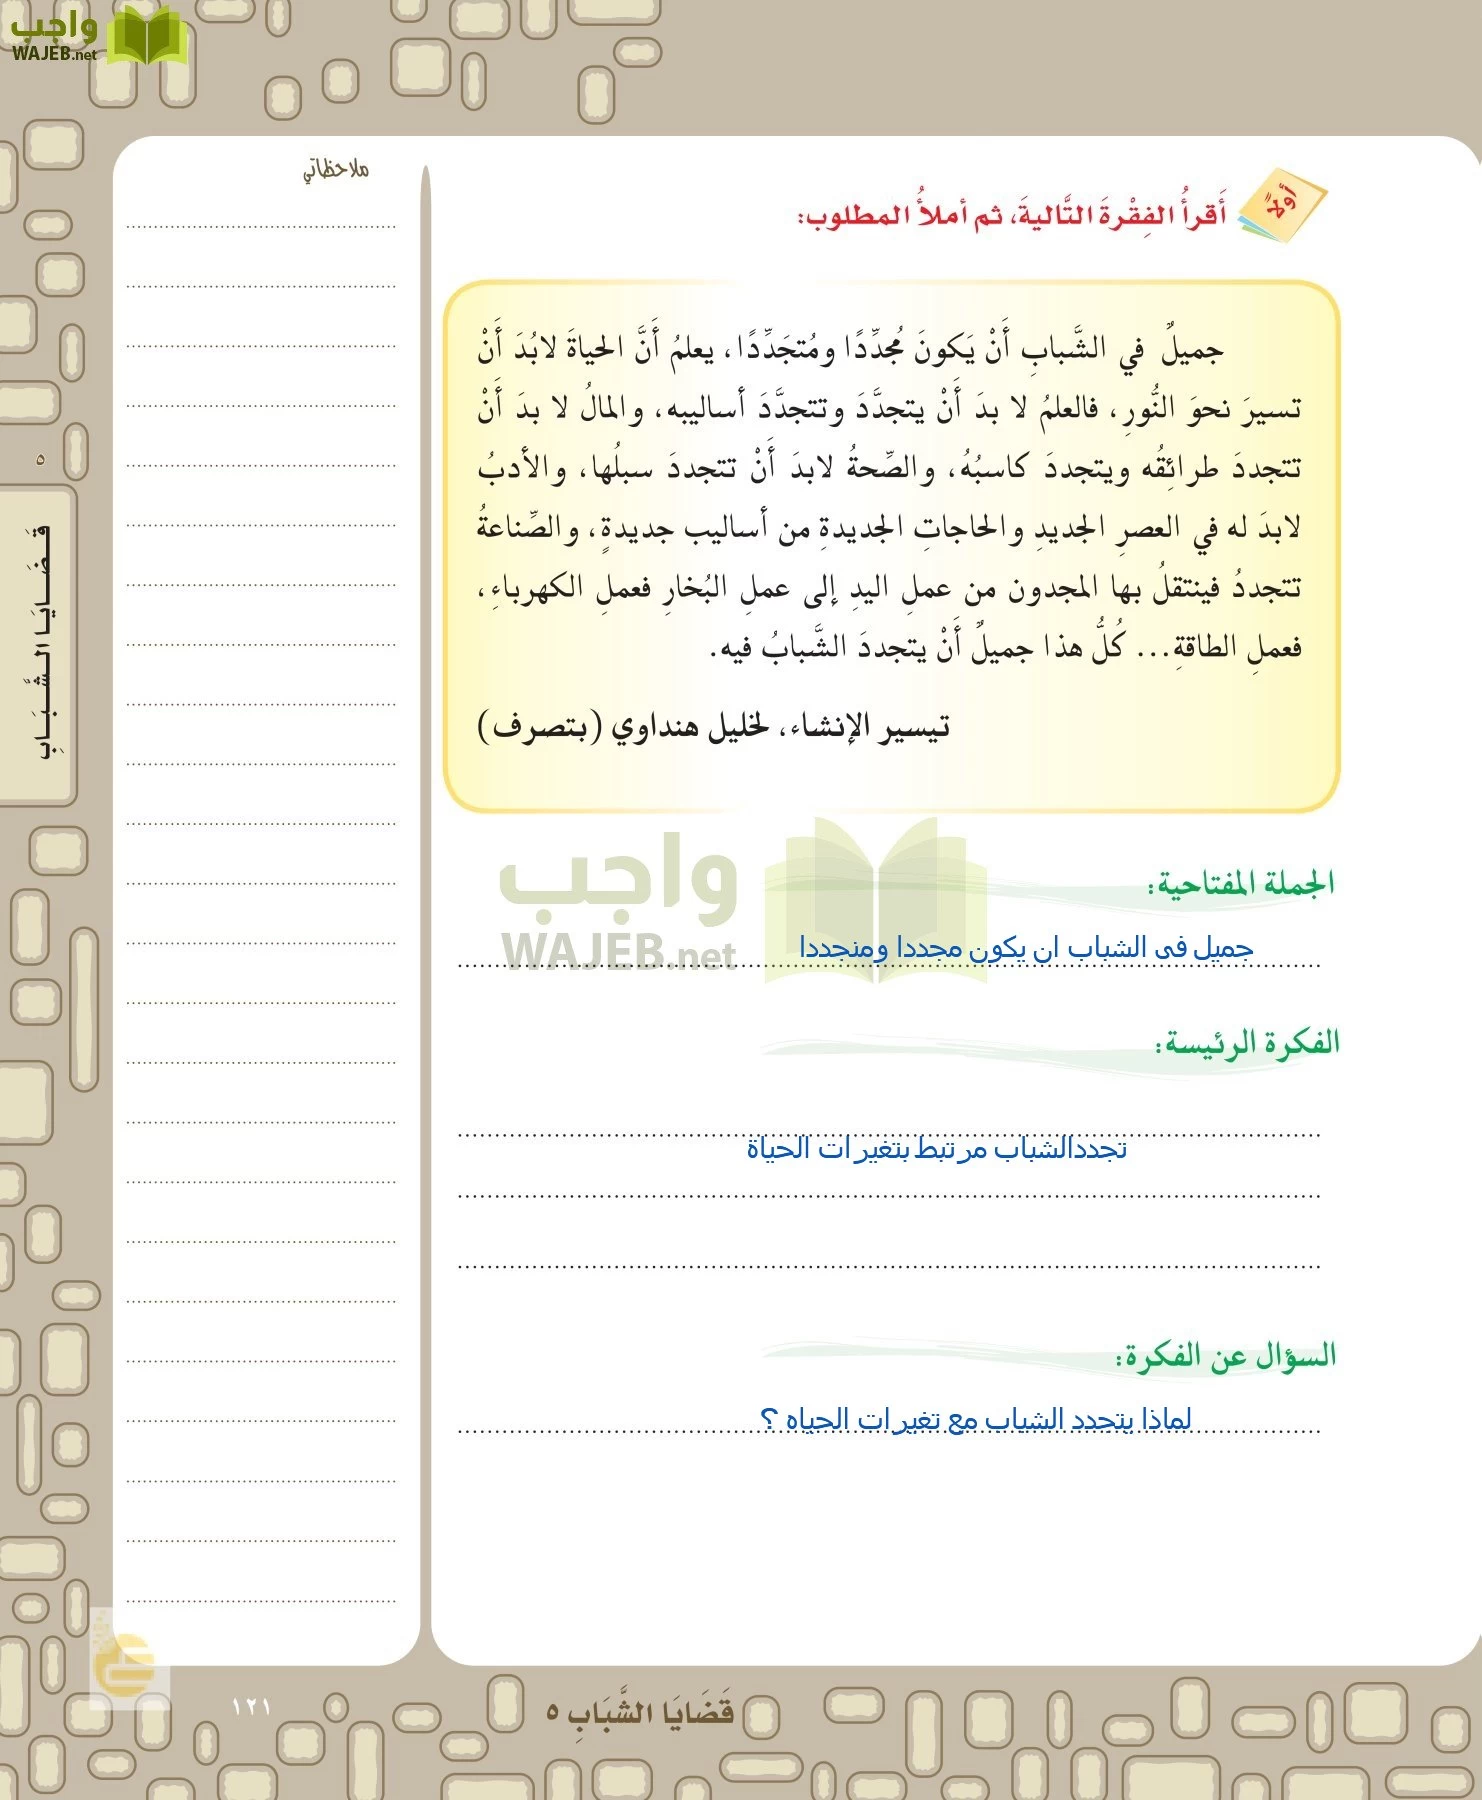 واجب
WAJEB.net
ملاحظاتي
أولاً
أَقرأُ الفِقْرةَ التَّاليةَ، ثم أملأُ المطلوب:
جميلٌ في الشَّبابِ أَنْ يَكونَ مُجدِّدًا ومُتجَدِّدًا، يعلمُ أَنَّ الحياةَ لابُدَ أَنْ
تسيرَ نحوَ النُّورِ، فالعلمُ لا بدَ أَنْ يتجدَّدَ وتتجدَّدَ أساليبه، والمالُ لا بدَ أَنْ
تتجددَ طرائِقُه ويتجددَ كاسبُهُ، والصِّحةُ لابدَ أَنْ تتجددَ سبلُها، والأدبُ
لابدَ له في العصرِ الجديدِ والحاجاتِ الجديدةِ من أساليب جديدةٍ، والصِّناعةُ
تتجددُ فينتقلُ بها المجددون من عملِ اليدِ إلى عملِ البُخارِ فعملِ الكهرباءِ،
فعملِ الطاقةِ... كُلُّ هذا جميلٌ أَنْ يتجددَ الشَّبابُ فيه.
تيسير الإنشاء، لخليل هنداوي (بتصرف)
واجب
WAJEB.net
الجملة المفتاحية:
جميل فى الشباب ان يكون مجددا ومنجددا
الفكرة الرئيسة:
تجددالشباب مرتبط بتغيرات الحياة
السؤال عن الفكرة:
لماذا يتجدد الشباب مع تغيرات الحياه ؟
٥
قَضَايَا الشَّبَابِ
قَضَايَا الشَّبَابِ ٥
١٢١